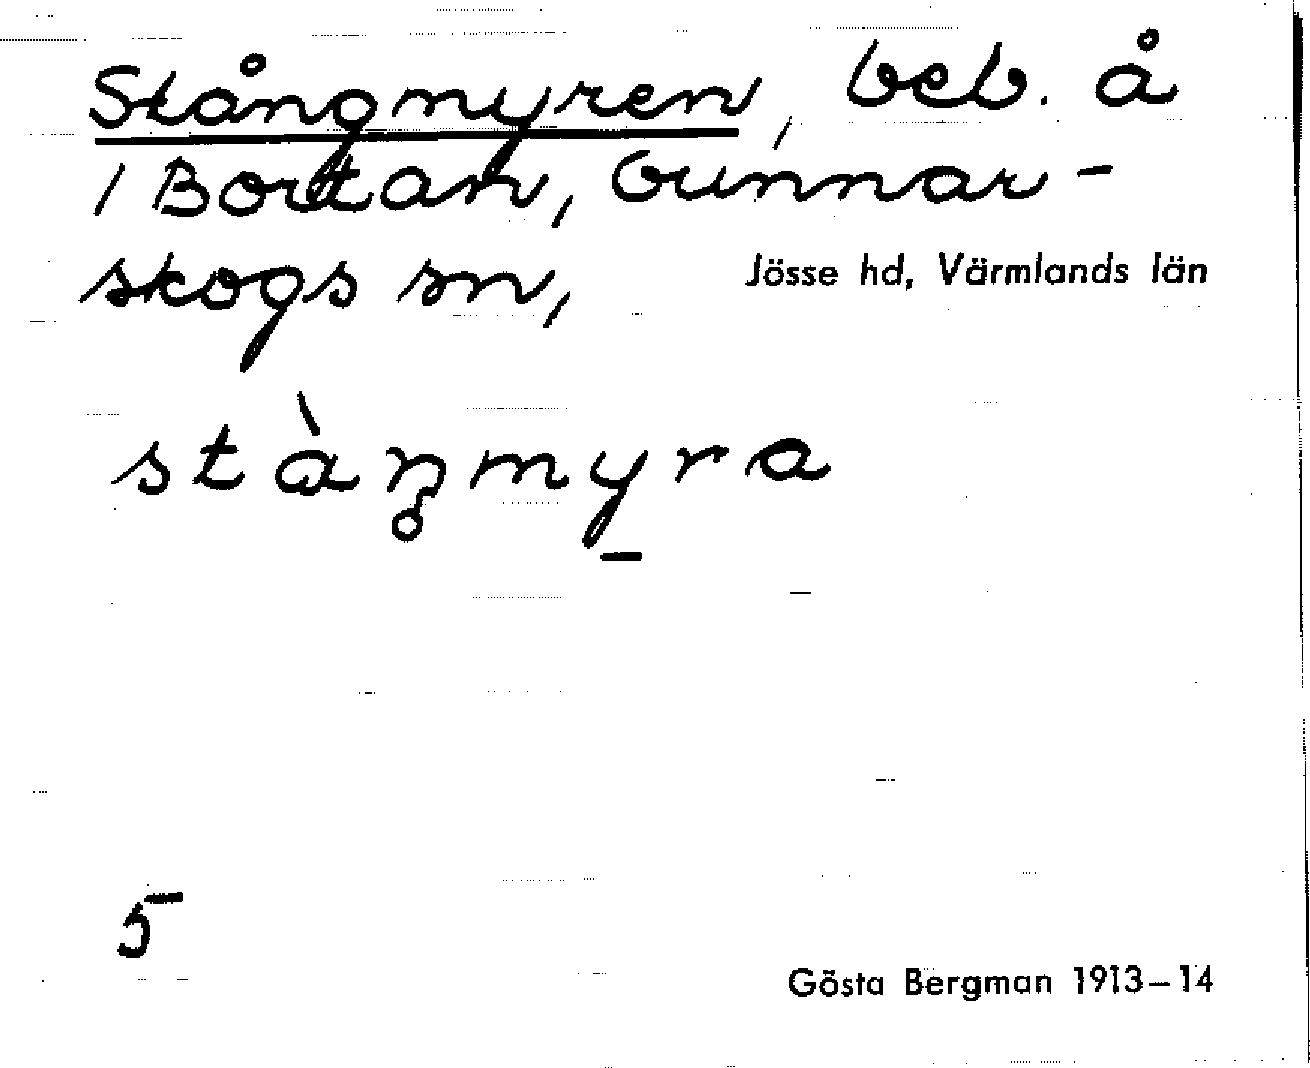 Stångmyren, beb. å
1 Bortan, Gunnar-
skogs sn, Jösse hd, Värmlands län
stàŋ̥my̠ra
5
Gösta Bergman 1913–14